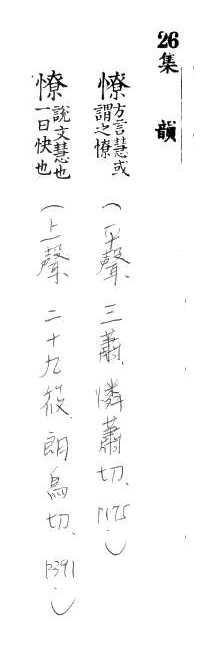 26
集韻
憭方言慧或謂之憭(平聲、三蕭、憐蕭切、P175.)
憭說文慧也一曰快也(上聲、二十九筱、朗鳥切、P391.)